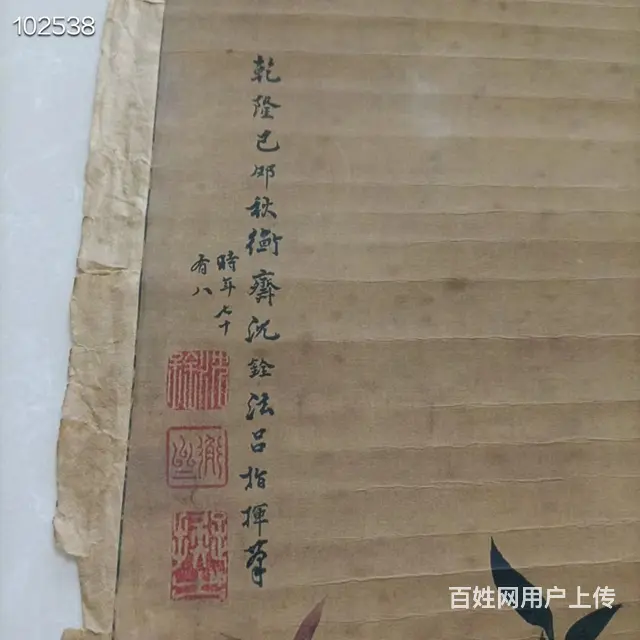 102538
乾隆己卯秋衡齋沈銓法吕指揮筆
時年七十
有八
沈銓
百姓网用户上传